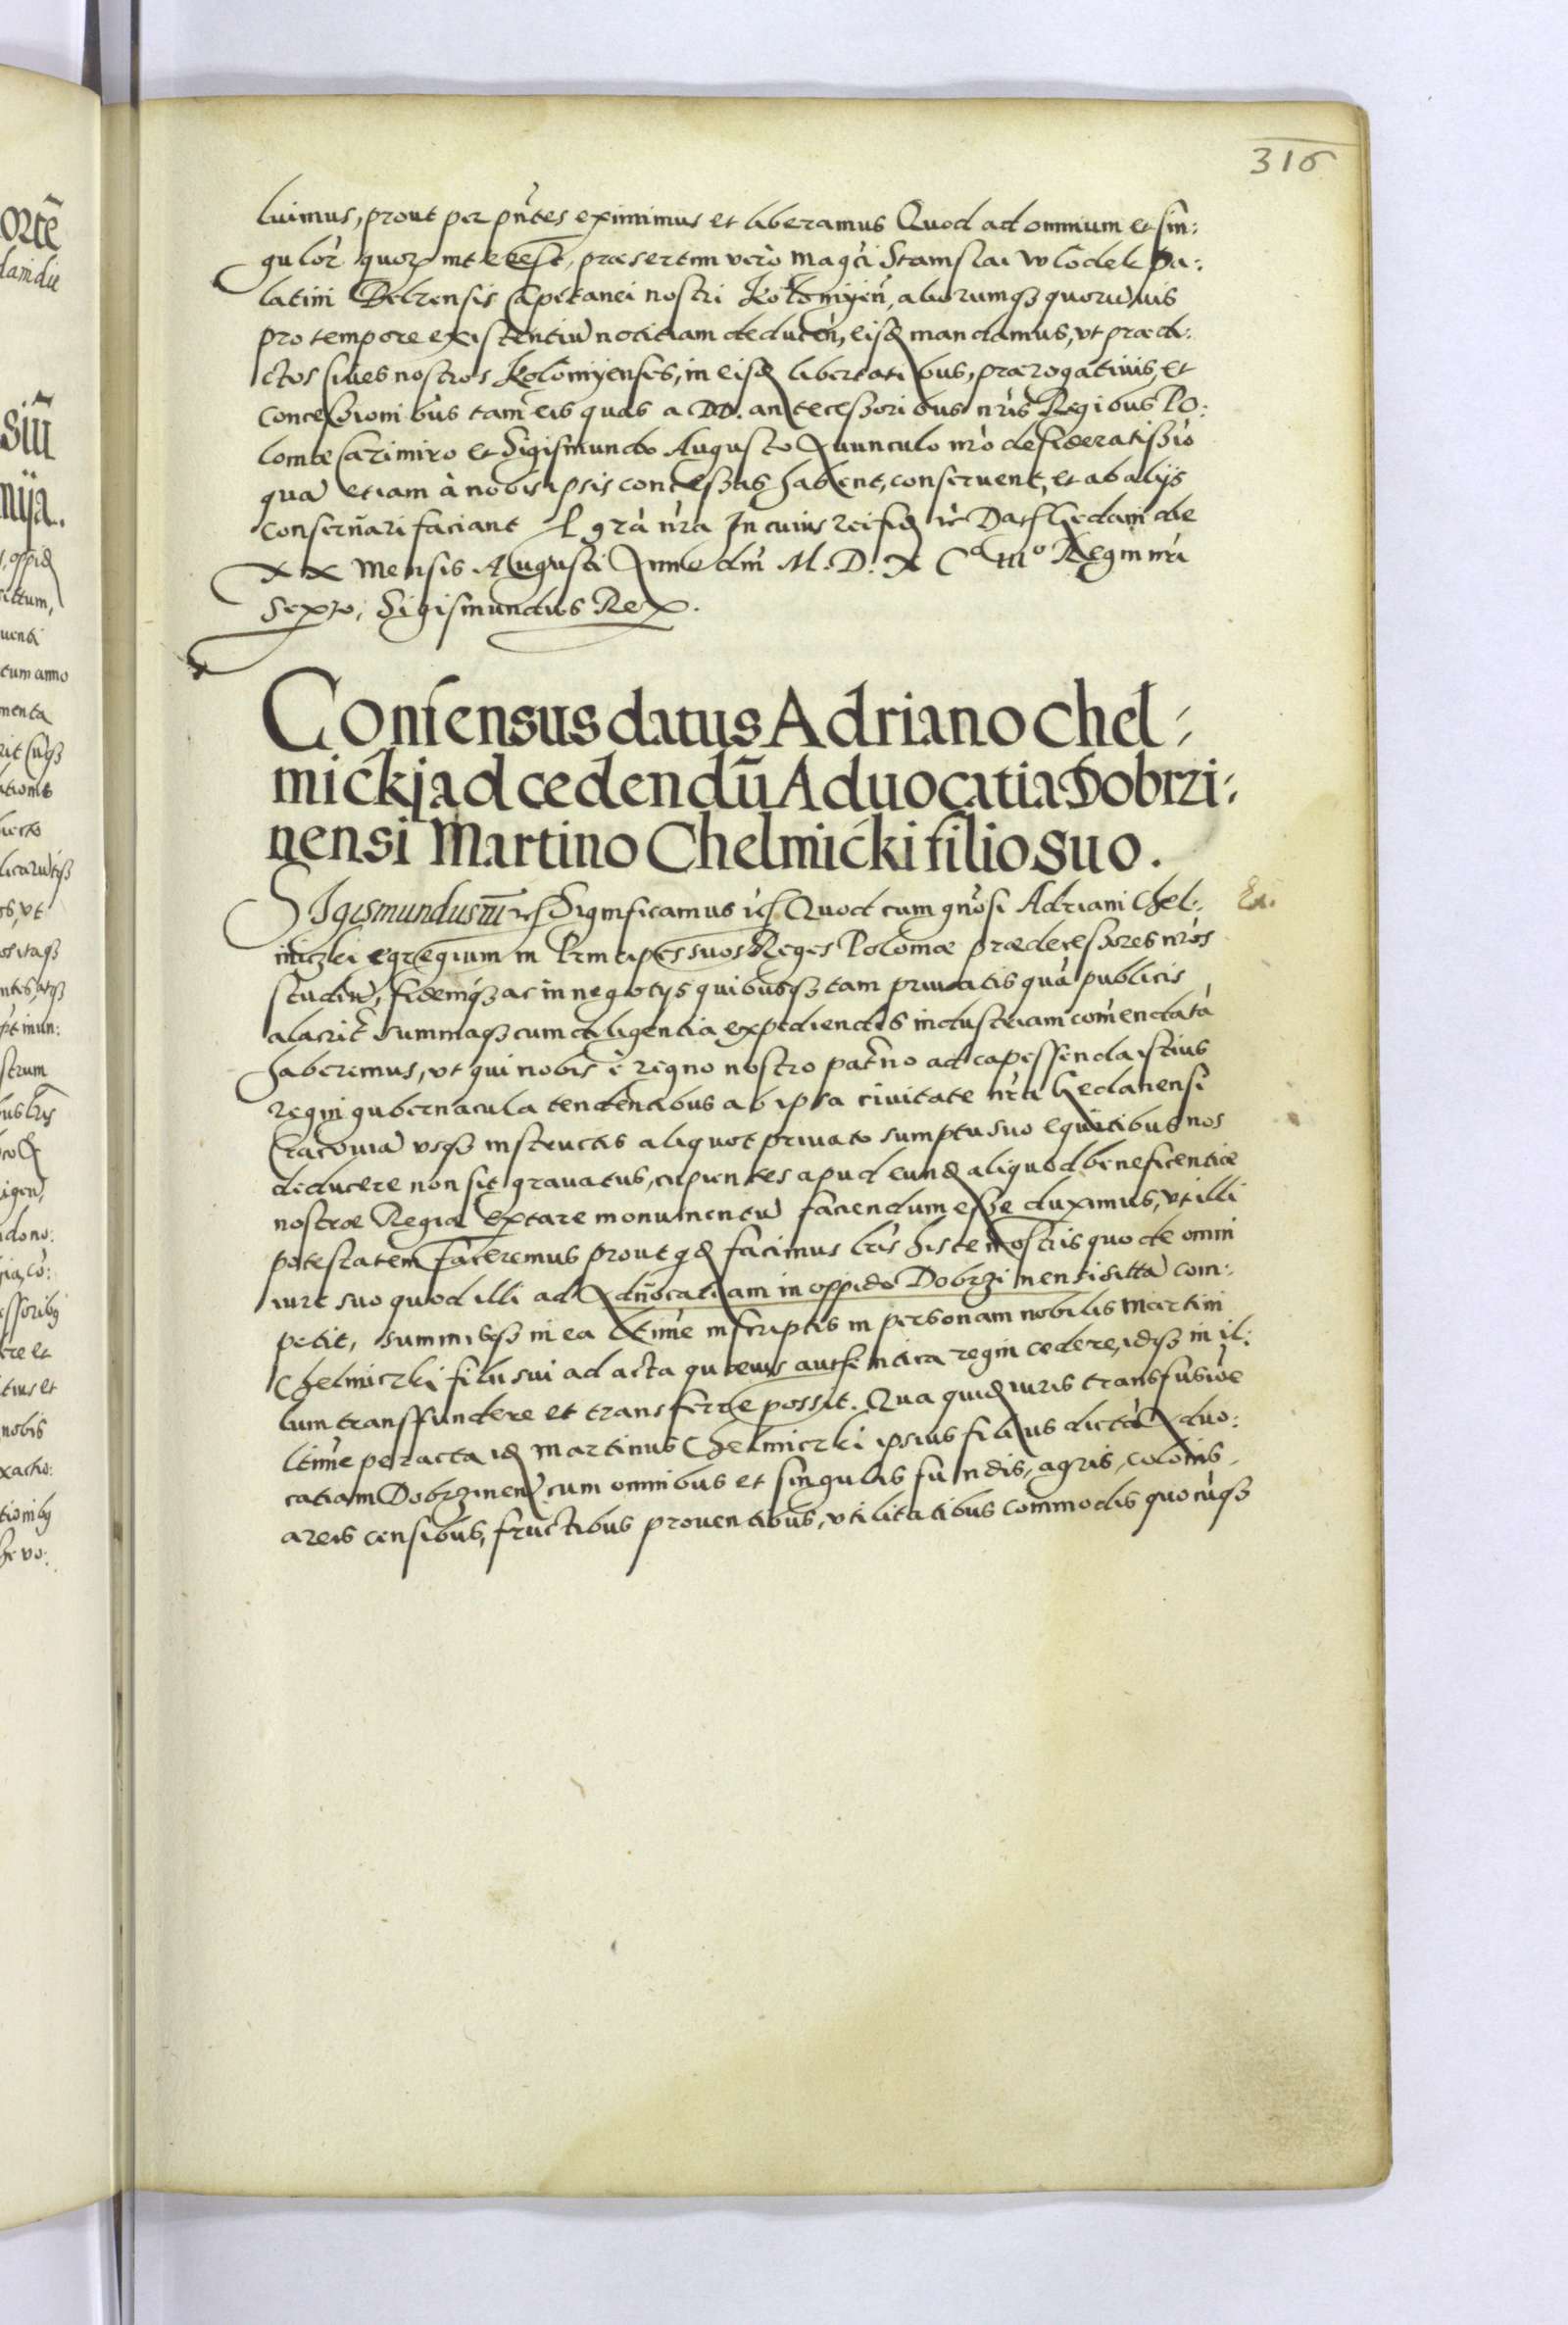 316
luimus, prout per pñtes eximimus et liberamus Quod ad omnium et sin:
gulor̀ quorꝫ interest, præsertim verò magci Stanislai Wlodek Pa:
latini Belzensis Capitanei nostri Kolomijeñ, aliorumqꝫ quorũuis
pro tempore existentiũ notitiam deduceñ, eisdꝫ mandamus, vt prædi:
ctos ciues nostros Kolomijenses, in eisdꝫ libertatibus, prærogatiuis, et
concessionibus tam eis quas a DD. antecessoribus nr̃is Regibus Po:
loniæ Cazimiro et Sigismundo Augusto Auunculo nr̃o desideratissio
quã etiam à nobis ipsis concessas habent, conseruent, et ab alijs
conseruari faciant P grã nr̃a In cuius rei fidꝫ rc̃ Dat Gedani die
XX mensis Augusti Anno dnĩ M. D. XCiiiº Regni nr̃i
sexto, Sigismundus Rex.
Consensus datus Adriano Chel:
micki ad cedendũ Aduocatia Dobrzi:
nensi Martino Chelmicki filio suo.
SIgismundus III rc̃ Significamus rc̃ Quod cum gnõsi Adriani Chel:
Ex.
miczki egregium in Principes suos Reges Poloniæ prædecessores nr̃os
studiũ, fidemqꝫ ac in negotijs quibusqꝫ tam priuatis quã publicis
alacrit̃ summaqꝫ cum diligentia expediendis industriam com̃endatã
haberemus, vt qui nobis è regno nostro pat̃no ad capessenda istius
regni gubernacula tendentibus ab ipsa ciuitate nr̃a Gedanensi
Cracouiã vsqꝫ instructis aliquot priuato sumptu suo equitibus nos
deducere non sit grauatus, cupientes apud eundꝫ aliquod beneficentiæ
nostræ Regiæ extare monumentũ faciendum esse duximus, vt illi
potestatem faceremus prout qdꝫ facimus lr̃is hisce nostris quo de omni
iure suo quod illi ad Aduocatiam in oppido Dobrzinensi sittã com:
petit, summisqꝫ in ea ltĩme inscriptis in personam nobilis Martini
Chelmiczki filii sui ad acta quæuis authentica regni cedere, idqꝫ in il:
lum transfundere et transferre possit. Qua quidꝫ iuris transfusiõe
ltĩme peracta idꝫ Martinus Chelmiczki ipsius filius dictã Aduo:
catiam Dobrzineñ cum omnibus et singulis fundis, agris, colonis,
areis censibus, fructibus prouentibus, vtilitatibus commodis quocũqꝫ